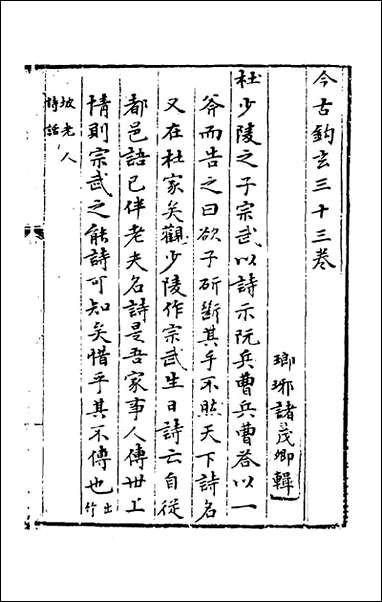 今古鈎玄三十三卷
瑯琊諸茂卿輯
杜少陵之子宗武以詩示阮兵曹兵曹荅以一
斧而告之曰欲子斫斷其手不然天下詩名
又在杜家矣觀少陵作宗武生日詩云自從
都邑語已伴老夫名詩是吾家事人傳世上
情則宗武之能詩可知矣惜乎其不傳也出竹
坡老人
詩話